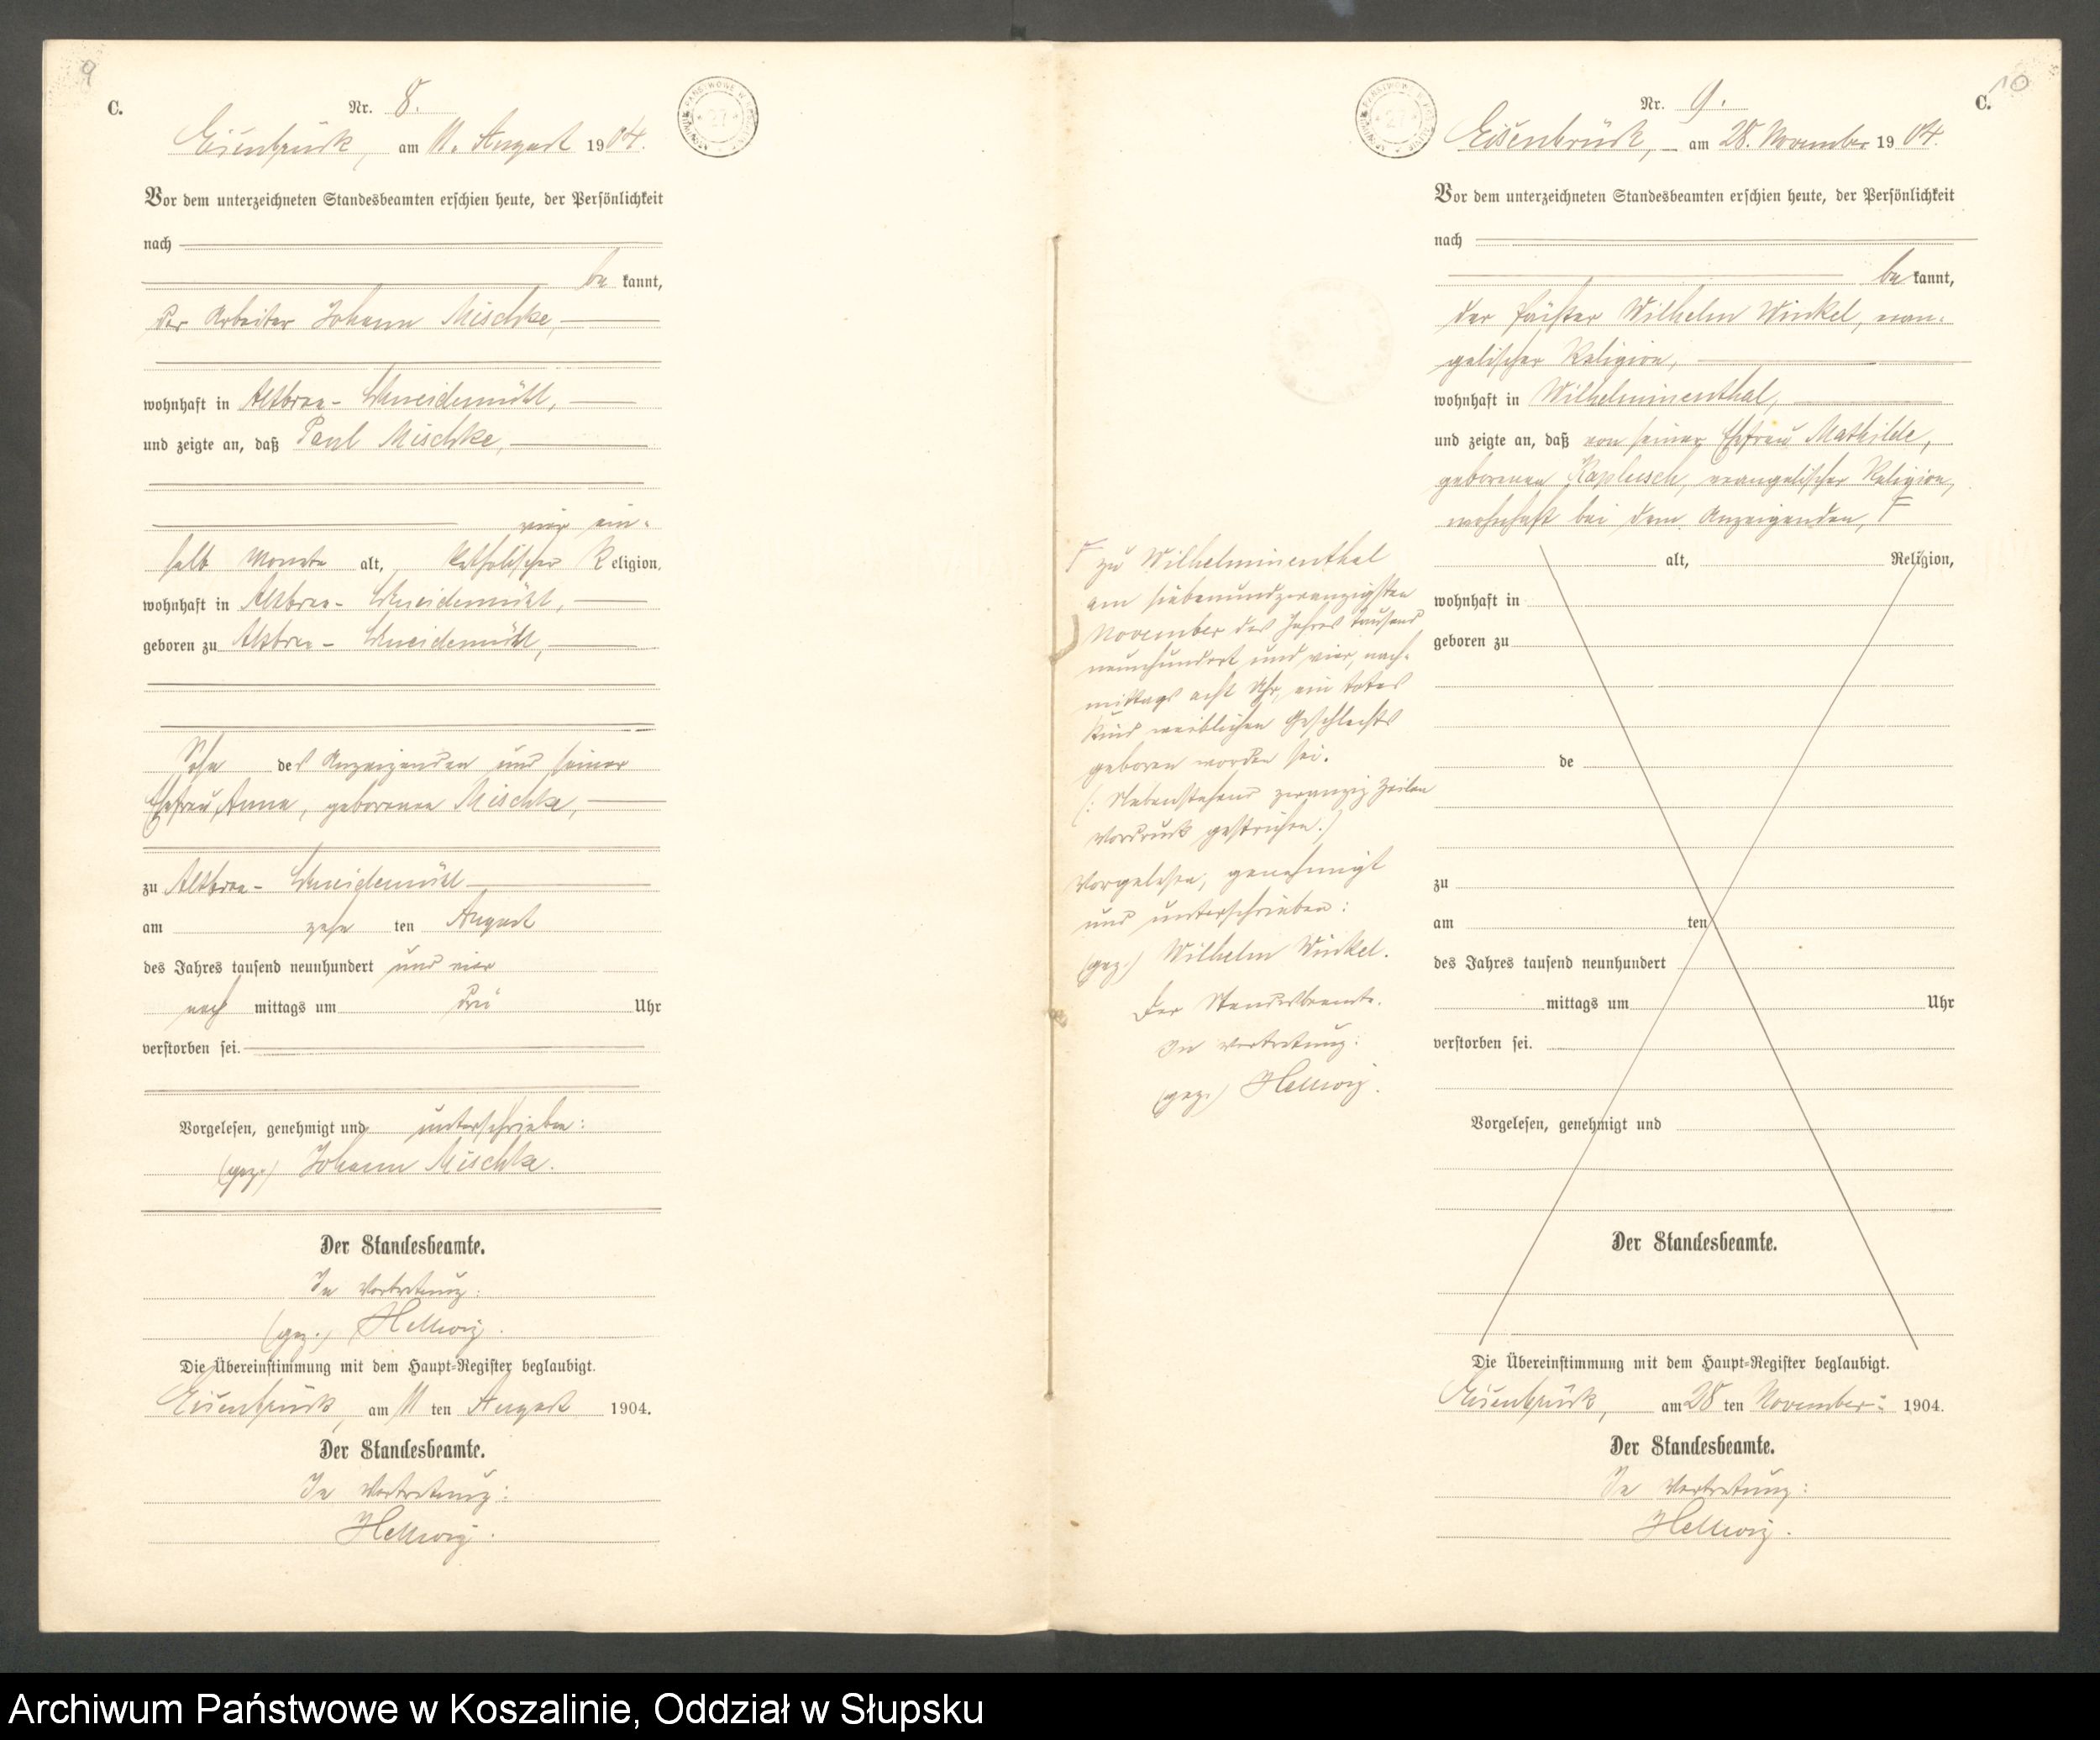 9
C.
Nr. 8.
Eisenbrück, am 11. August 1904.
Vor dem unterzeichneten Standesbeamten erschien heute, der Persönlichkeit
nach
be kannt,
der Arbeiter Johann Mischke,
wohnhaft in Altbraa- Schneidemühl,
und zeigte an, daß Paul Mischke,
vier ein-
halb Monate alt, katholischer Religion,
wohnhaft in Altbraa- Schneidemühl,
geboren zu Altbraa- Schneidemühl,
Sohn des Anzeigenden und seiner
Ehefrau Anna, geborenen Mischke,
zu Altbraa- Schneidemühl
am zehn ten August
des Jahres tausend neunhundert und vier
nach mittags um drei Uhr
verstorben sei.
Vorgelesen, genehmigt und unterschrieben:
(gez.) Johann Mischke.
Der Standesbeamte.
In Vertretung:
(gez.) Hellwig.
Die Übereinstimmung mit dem Haupt-Register beglaubigt.
Eisenbrück, am 11 ten August 1904.
Der Standesbeamte.
In Vertretung:
Hellwig.
10
C.
Nr. 9.
Eisenbrück, am 28. November 1904.
Vor dem unterzeichneten Standesbeamten erschien heute, der Persönlichkeit
nach
be kannt,
der Pächter Wilhelm Winkel, evan-
gelischer Religion,
wohnhaft in Wilhelminenthal,
und zeigte an, daß von seiner Ehefrau Mathilde,
geborenen evangelischer Religion,
wohnhaft bei dem Anzeigenden,
zu Wilhelminenthal
am siebenundzwanzigsten
November des Jahres tausend
neunhundert und vier, nach-
mittags acht Uhr, ein totes
Kind weiblichen Geschlechts
geboren worden sei.
(: Nebenstehend zwanzig Zeilen
Vordruck gestrichen.)
Vorgelesen, genehmigt
und unterschrieben:
(gez.) Wilhelm Winkel.
Der Standesbeamte.
In Vertretung:
(gez.) Hellwig.
alt, Religion,
wohnhaft in
geboren zu
de
zu
am ten
des Jahres tausend neunhundert
mittags um Uhr
verstorben sei.
Vorgelesen, genehmigt und
Der Standesbeamte.
Die Übereinstimmung mit dem Haupt-Register beglaubigt.
Eisenbrück, am 28 ten November 1904.
Der Standesbeamte.
In Vertretung:
Hellwig.
Archiwum Państwowe w Koszalinie, Oddział w Słupsku